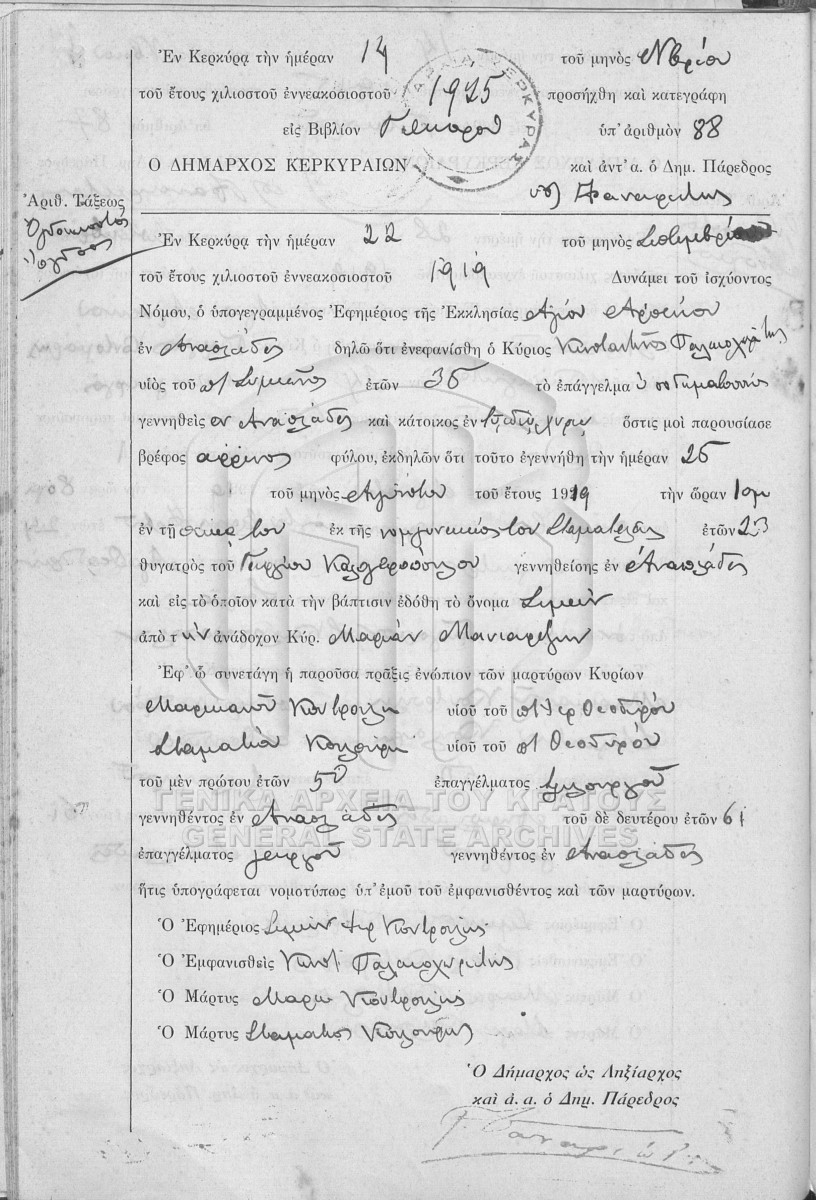 Ἐν Κερκύρᾳ τὴν ἡμέραν 14 τοῦ μηνὸς Νβρίου
τοῦ ἔτους χιλιοστοῦ ἐννεακοσιοστοῦ 1925 προσήχθη καὶ κατεγράφη
εἰς Βιβλίον ὑπ' ἀριθμὸν 88
Ο ΔΗΜΑΡΧΟΣ ΚΕΡΚΥΡΑΙΩΝ καὶ ἀντ' α. ὁ Δημ. Πάρεδρος
Ἀριθ. Τάξεως
Ὀγδοηκοστὸς
ὄγδοος
Ἐν Κερκύρᾳ τὴν ἡμέραν 22 τοῦ μηνὸς Σεπτεμβρίου
τοῦ ἔτους χιλιοστοῦ ἐννεακοσιοστοῦ 1919 Δυνάμει τοῦ ἰσχύοντος
Νόμου, ὁ ὑπογεγραμμένος Ἐφημέριος τῆς Ἐκκλησίας Ἁγίου
ἐν Αναπλάδες δηλῶ ὅτι ἐνεφανίσθη ὁ Κύριος Κωνσταντῖνος Παλαιοχωρίτης
υἱὸς τοῦ π/ Συμεῶνος ἐτῶν 35 τὸ ἐπάγγελμα ὑποδηματοποιός
γεννηθεὶς ἐν Αναπλάδες καὶ κάτοικος ἐν ὅστις μοὶ παρουσίασε
βρέφος ἄρρενος φύλου, ἐκδηλῶν ὅτι τοῦτο ἐγεννήθη τὴν ἡμέραν 25
τοῦ μηνὸς Αὐγούστου τοῦ ἔτους 1919 τὴν ὥραν
ἐν τῇ οἰκίᾳ του ἐκ τῆς νομ. γυναικός του Σταματέλας ἐτῶν 23
θυγατρὸς τοῦ Γεωργίου Καλογεροπούλου γεννηθείσης ἐν Αναπλάδες
καὶ εἰς τὸ ὁποῖον κατὰ τὴν βάπτισιν ἐδόθη τὸ ὄνομα Συμεών
ἀπὸ τ ὴν ἀνάδοχον Κύρ. Μαρίαν
Ἐφ' ᾧ συνετάγη ἡ παροῦσα πρᾶξις ἐνώπιον τῶν μαρτύρων Κυρίων
Κοντρούλη υἱοῦ τοῦ π/ Ἱερ Θεοδώρου
Σταματίου υἱοῦ τοῦ π/ Θεοδώρου
τοῦ μὲν πρώτου ἐτῶν 50 ἐπαγγέλματος ξυλουργοῦ
γεννηθέντος ἐν Αναπλάδες τοῦ δὲ δευτέρου ἐτῶν 61
ἐπαγγέλματος γεωργοῦ γεννηθέντος ἐν Αναπλάδες
ἥτις ὑπογράφεται νομοτύπως ὑπ' ἐμοῦ τοῦ ἐμφανισθέντος καὶ τῶν μαρτύρων.
Ὁ Ἐφημέριος Συμεών Ιερ Κοντρούλης
Ὁ Ἐμφανισθεὶς Κωνστ. Παλαιοχωρίτης
Ὁ Μάρτυς Κοντρούλης
Ὁ Μάρτυς Σταμάτιος
Ὁ Δήμαρχος ὡς Ληξίαρχος
καὶ ἀ. α. ὁ Δημ. Πάρεδρος
ΓΕΝΙΚΑ ΑΡΧΕΙΑ ΤΟΥ ΚΡΑΤΟΥΣ
GENERAL STATE ARCHIVES